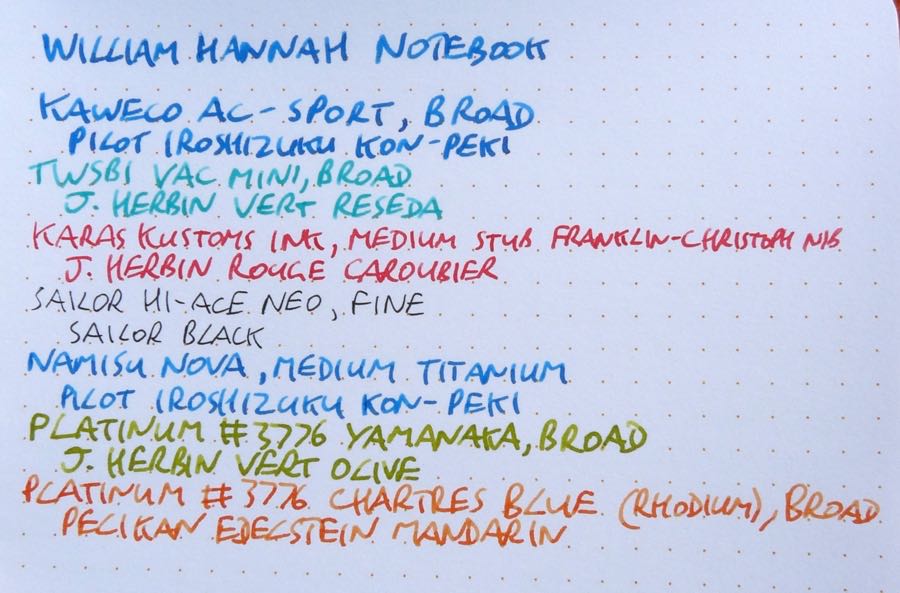 WILLIAM HANNAH NOTEBOOK
KAWECO AC-SPORT, BROAD
PILOT IROSHIZUKU KON-PEKI
TWSBI VAC MINI, BROAD
J. HERBIN VERT RESEDA
KARAS KUSTOMS INK, MEDIUM STUB FRANKLIN-CHRISTOPH NIB
J. HERBIN ROUGE CAROUBIER
SAILOR HI-ACE NEO, FINE
SAILOR BLACK
NAMISU NOVA, MEDIUM TITANIUM
PILOT IROSHIZUKU KON-PEKI
PLATINUM #3776 YAMANAKA, BROAD
J. HERBIN VERT OLIVE
PLATINUM #3776 CHARTRES BLUE (RHODIUM), BROAD
PELIKAN EDELSTEIN MANDARIN